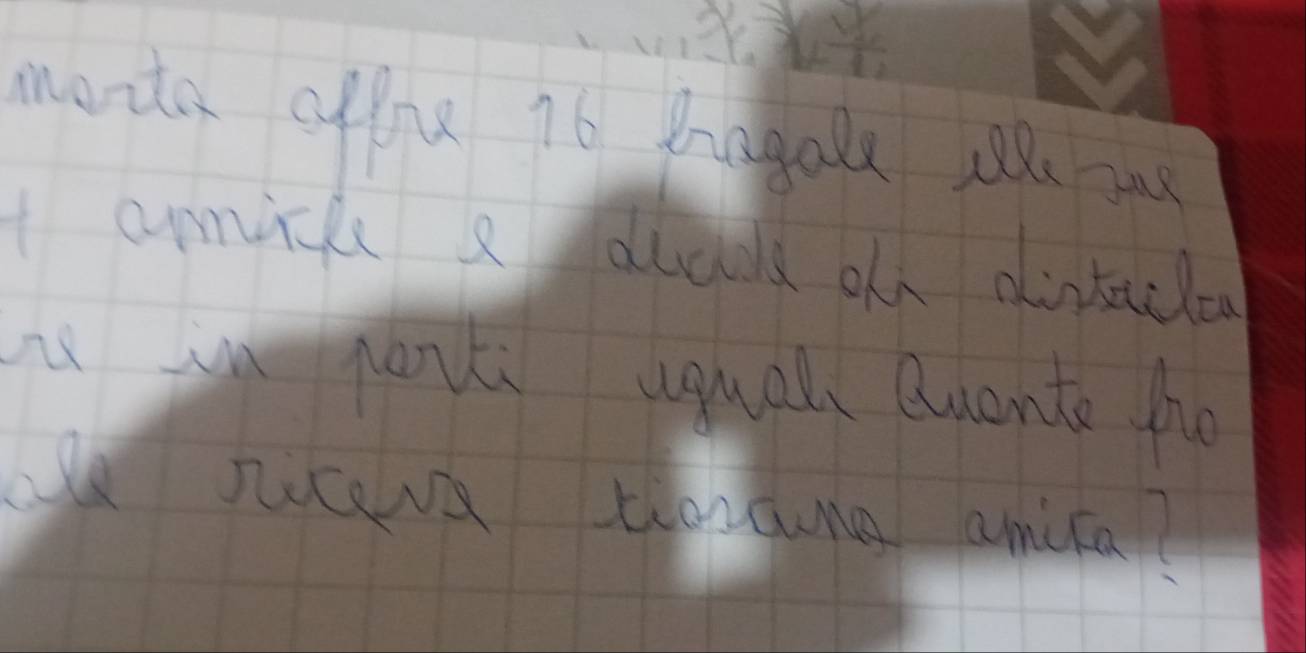 marta offre 16 fragole alle sue
4 amiche e decide di distribu
ire in parti uguali Quante fra
ole riceve ciascuna amica?